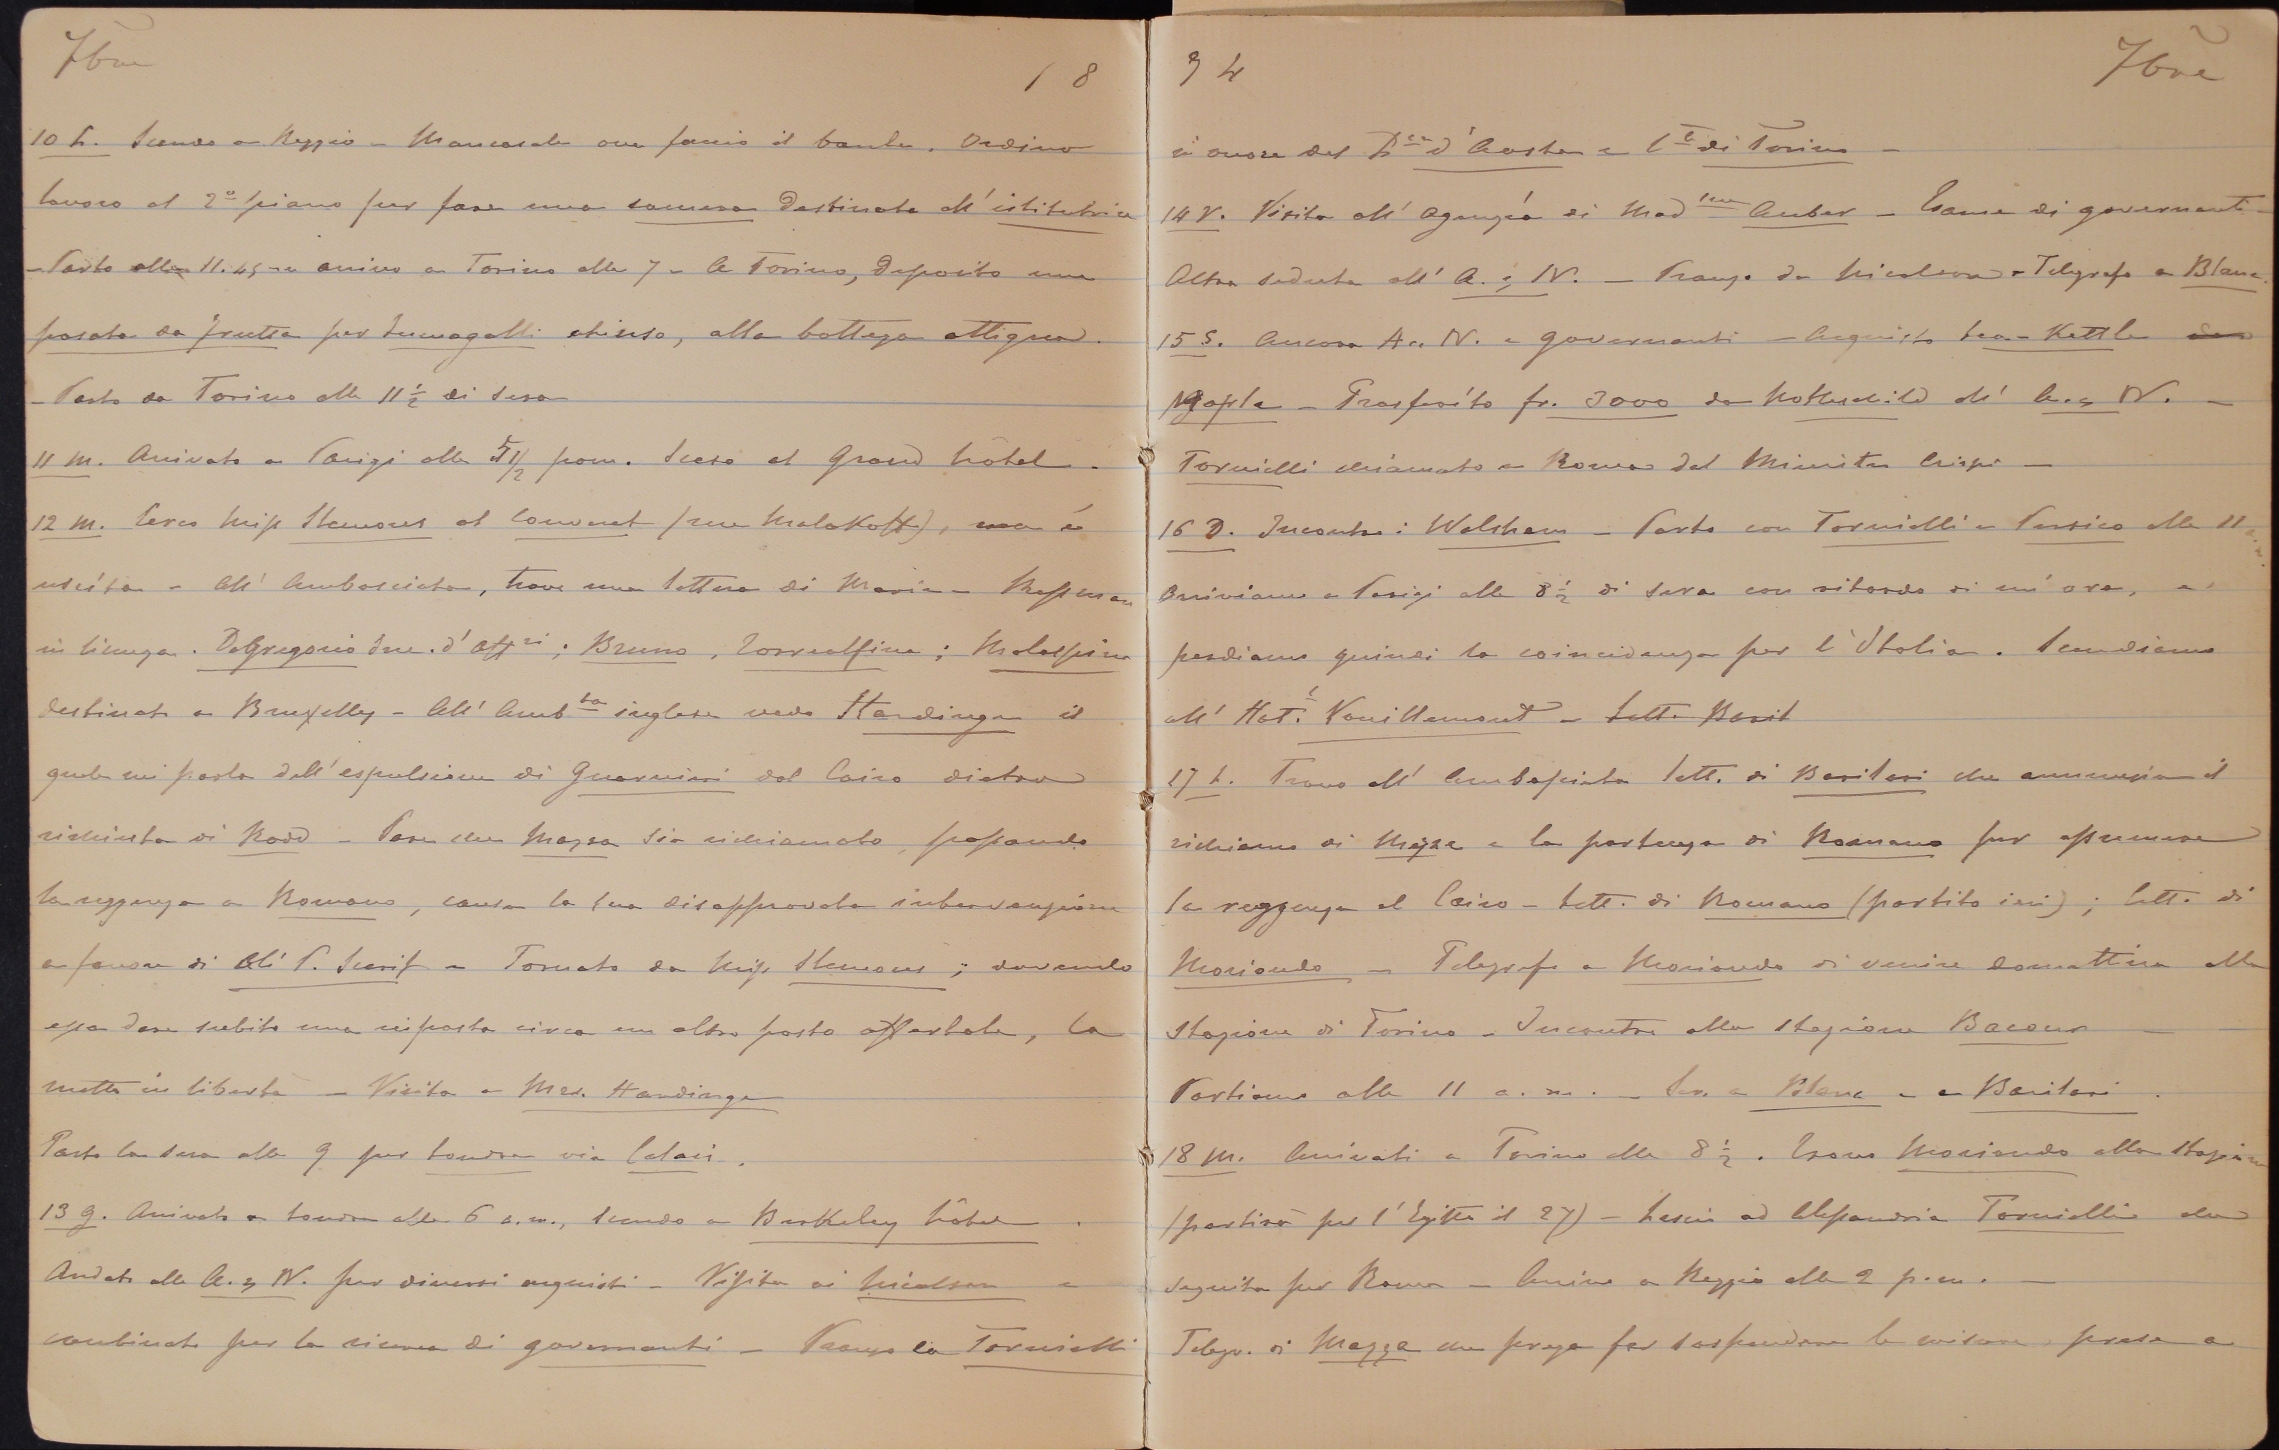 7bre
18
10 L. Scendo a Reggio - Mancasale ove faccio il baule. Ordino
lavoro al 2º piano per fare una camera destinata all'istitutrice
- Parto alle 11.45 - e arrivo a Torino alle 7 - A Torino, deposito una
posata da frutta per Fumagalli chiuso, alla bottega attigua.
- Parto da Torino alle 11 ½ di sera
11 M. Arrivato a Parigi alle 5 1/2 pom. Sceso al Grand hôtel.
12 M. Cerco Miss al Convent (rue Malakoff), ma è
uscita - All'Ambasciata, trovo una lettera di Maria - Ressman
in licenza. DeGregorio Inc. d'Affri; Bruno, Torrealfina; Malaspina
destinato a Bruxelles - All'Ambta inglese vedo Hardinge il
quale mi parla dell'espulsione di Guarnieri dal Cairo dietro
richiesta di Rodd - Pare che Mazza sia richiamato, passando
la reggenza a Romano, causa la sua disapprovata intervenzione
a favore di Alì P. Scerif - Tornato da Miss ; dovendo
essa dare subito una risposta circa un altro posto offertole, la
metto in libertà - Visita a Mrs. Hardinge
Parto la sera alle 9 per Londra via Calais.
13 G. Arrivato a Londra alle 6 a.m., scendo a Berkeley hôtel.
Andato alle A. & N. per diversi acquisti - Visita ai Nicolson e
combinato per la ricerca di governanti - Pranzo da Tornielli
94
7bre
in onore del Dca d'Aosta e Cte di Torino -
14 V. Visita all'agenzia di Madme Auber - Esame di governanti -
Altra seduta all'A. & N. - Pranzo da Nicolson - Telegrafo a Blanc.
15 S. Ancora A. & N. e governanti - Acquisto tea-Kettle
- Trasferito fr. 3000 da Rothschild all'A. & N. -
Tornielli chiamato a Roma dal Ministro Crispi -
16 D. Incontro i Walsham - Parto con Tornielli e Persico alle 11 a.m.
Arriviamo a Parigi alle 8 ½ di sera con ritardo di un'ora, e
perdiamo quindi la coincidenza per l'Italia. Scendiamo
all'Hot.l Vouillemont - Lett.
17 L. Trovo all'Ambasciata lett. di Baritari che annunzia il
richiamo di Mazza e la partenza di Romano per assumere
la reggenza al Cairo - Lett. di Romano (partito ieri); lett. di
Moriondo - Telegrafo a Moriondo di venire domattina alla
stazione di Torino - Incontro alla stazione Bacour -
Partiamo alle 11 a.m. - Scr. a Blanc - a Baritari.
18 M. Arrivati a Torino alle 8 ½. Trovo Moriondo alla stazione
(partirà per l'Egitto il 27) - Lascio ad Alessandria Tornielli che
seguita per Roma - Arrivo a Reggio alle 2 p.m. -
Telegr. di Mazza che prega far sospendere le misure prese a